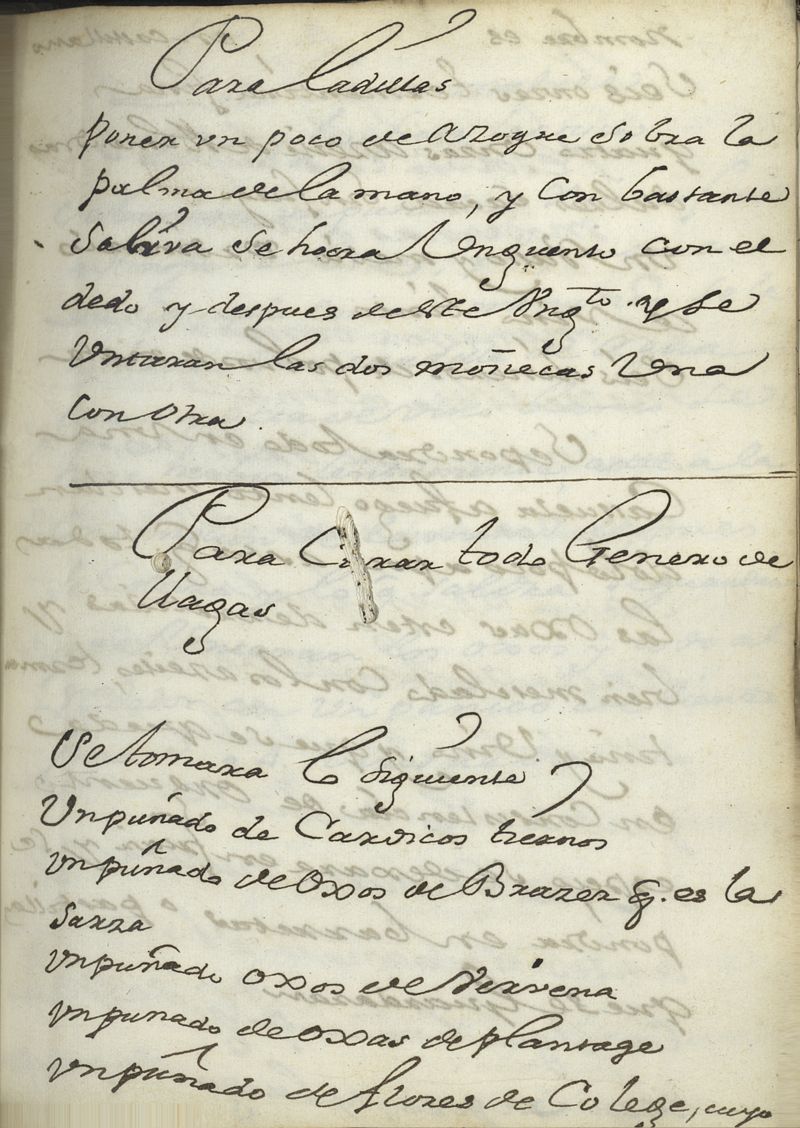 Para ladillas
poner un poco de azogue sobra la
palma de la mano, y con bastante
saliva se hara Vnguento con el
dedo y despues de este Vngto. y se
Vntaran las dos moñecas Vna
con otra.
Para Curar todo Genero de
llagas
Se tomara lo siguiente
Un puñado de Cardicos tiernos
vn puñado de oxos de Brazer q. es la
sarza
vn puñado oxos de Vervena
vn punado de oxas de plantage
vn puñado de flores de Colege, cuyo